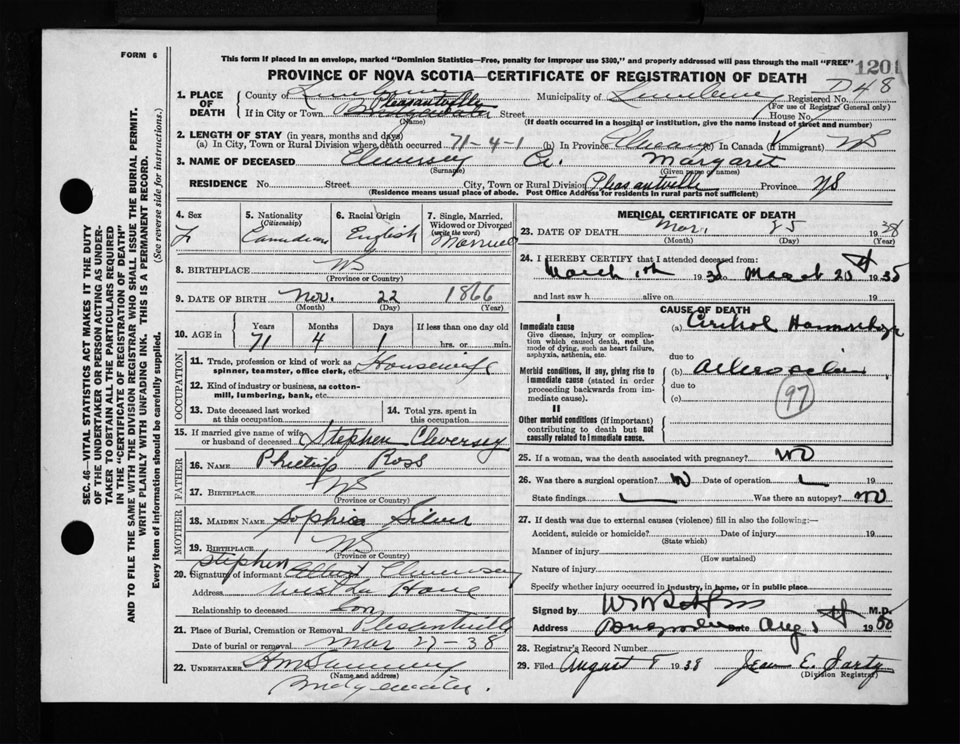 FORM 6
This form if placed in an envelope, marked "Dominion Statistics—Free, penalty for improper use $300," and properly addressed will pass through the mail "FREE"
1201
PROVINCE OF NOVA SCOTIA—CERTIFICATE OF REGISTRATION OF DEATH
D48
1. PLACE OF DEATH
County of Lunenburg Municipality of Lunenburg Registered No.
(For use of Registrar General only)
If in City or Town Bridgewater Pleasantville Street House No.
(Name) (If death occurred in a hospital or institution, give the name instead of street and number)
2. LENGTH OF STAY (in years, months and days)
(a) In City, Town or Rural Division where death occurred 71-4-1 (b) In Province (c) In Canada (if immigrant) NS
3. NAME OF DECEASED Cleversey A. Margaret
(Surname) (Given name or names)
RESIDENCE No. Street City, Town or Rural Division Pleasantville Province NS
(Residence means usual place of abode. Post Office Address for residents in rural parts not sufficient)
4. Sex 5. Nationality (Citizenship) 6. Racial Origin 7. Single, Married, Widowed or Divorced (write the word)
F Canadian English Married
8. BIRTHPLACE NS
(Province or Country)
9. DATE OF BIRTH Nov. 22 1866
(Month) (Day) (Year)
10. AGE in Years Months Days If less than one day old
71 4 1 hrs. or min.
OCCUPATION
11. Trade, profession or kind of work as spinner, teamster, office clerk, etc. Housewife
12. Kind of industry or business, as cotton-mill, lumbering, bank, etc.
13. Date deceased last worked at this occupation
14. Total yrs. spent in this occupation
15. If married give name of wife or husband of deceased Stephen Cleversey
FATHER
16. NAME Ross
17. BIRTHPLACE NS
(Province or Country)
MOTHER
18. MAIDEN NAME Sophia Silver
19. BIRTHPLACE NS
(Province or Country)
Stephen
20. Signature of informant Albert Cleversey
Address
Relationship to deceased Son
21. Place of Burial, Cremation or Removal Pleasantville
Date of burial or removal Mar 27-38
22. UNDERTAKER
(Name and address)
Bridgewater.
MEDICAL CERTIFICATE OF DEATH
23. DATE OF DEATH Mar. 25 1938
(Month) (Day) (Year)
24. I HEREBY CERTIFY that I attended deceased from:
March 19 March 20 19
and last saw h alive on 19
CAUSE OF DEATH
I
Immediate cause
Give disease, injury or complication which caused death, not the mode of dying, such as heart failure, asphyxia, asthenia, etc.
(a) Cerebral Hemorrhage
due to
Morbid conditions, if any, giving rise to immediate cause (stated in order proceeding backwards from immediate cause).
(b)
due to
(c)
97
II
Other morbid conditions (if important) contributing to death but not causally related to immediate cause.
25. If a woman, was the death associated with pregnancy? NO
26. Was there a surgical operation? Date of operation 19
State findings Was there an autopsy? NO
27. If death was due to external causes (violence) fill in also the following:—
Accident, suicide or homicide? Date of injury 19
(State which)
Manner of injury
(How sustained)
Nature of injury
Specify whether injury occurred in industry, in home, or in public place
Signed by M.D.
Address Date Aug 19
28. Registrar's Record Number
29. Filed August 8 1938 Jean E.
(Division Registrar)
SEC. 46—VITAL STATISTICS ACT MAKES IT THE DUTY
OF THE UNDERTAKER OR PERSON ACTING AS UNDER-
TAKER TO OBTAIN ALL THE PARTICULARS REQUIRED
IN THE "CERTIFICATE OF REGISTRATION OF DEATH"
AND TO FILE THE SAME WITH THE DIVISION REGISTRAR WHO SHALL ISSUE THE BURIAL PERMIT.
WRITE PLAINLY WITH UNFADING INK. THIS IS A PERMANENT RECORD.
Every item of information should be carefully supplied. (See reverse side for instructions.)